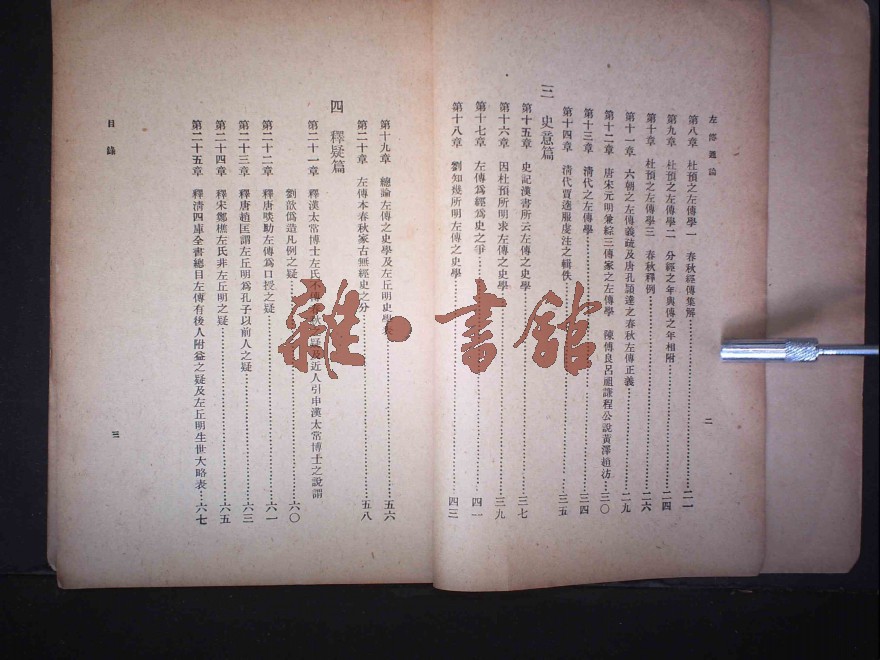 左傳通論
二
第八章　杜預之左傳學一　春秋經傳集解……二一
第九章　杜預之左傳學二　分經之年與傳之年相附……二四
第十章　杜預之左傳學三　春秋釋例……二六
第十一章　六朝之左傳義疏及唐孔穎達之春秋左傳正義……二九
第十二章　唐宋元明兼綜三傳家之左傳學　陳傅良呂祖謙程公說黃澤趙汸…三〇
第十三章　清代之左傳學……三四
第十四章　清代賈逵服虔注之輯佚……三五
三　史意篇
第十五章　史記漢書所云左傳之史學……三七
第十六章　因杜預所明求左傳之史學……三九
第十七章　左傳為經為史之爭……四一
第十八章　劉知幾所明左傳之史學……四三
第十九章　總論左傳之史學及左丘明史學……五六
第二十章　左傳本春秋家古無經史之分……五八
四　釋疑篇
第二十一章　釋漢太常博士左氏不傳春秋之疑及近人引申漢太常博士之說謂
劉歆僞造凡例之疑……六〇
第二十二章　釋唐啖助左傳為口授之疑……六一
第二十三章　釋唐趙匡謂左丘明為孔子以前人之疑……六三
第二十四章　釋宋鄭樵左氏非左丘明之疑……六五
第二十五章　釋清四庫全書總目左傳有後人附益之疑及左丘明生世大略表…六七
目錄
三
雜·書館